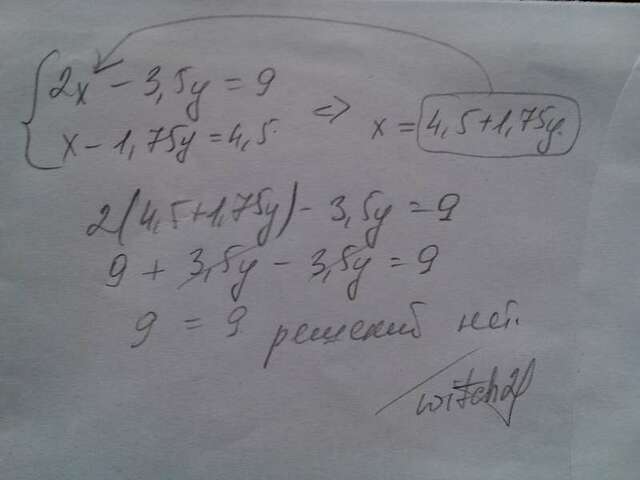 2x - 3,5y = 9
x - 1,75y = 4,5 <=> x = 4,5+1,75y.
2(4,5+1,75y) - 3,5y = 9
9 + 3,5y - 3,5y = 9
9 = 9 решений нет.